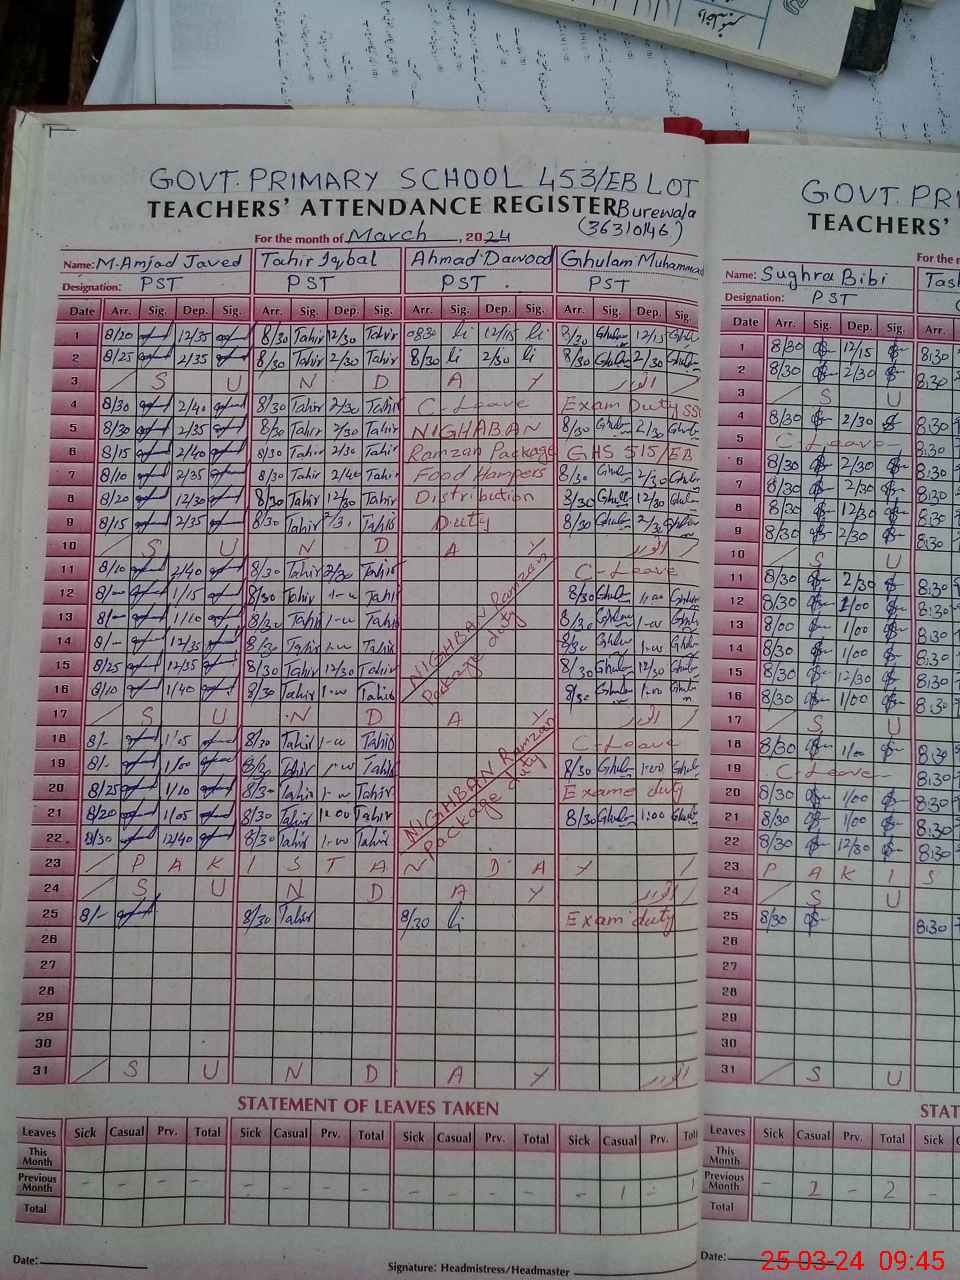 GOVT. PRIMARY SCHOOL 453/EB LOT
TEACHERS' ATTENDANCE REGISTER Burewala
For the month of March, 2024 (36310146)
Name: M. Amjad Javed Tahir Iqbal Ahmad Dawood Ghulam Muhammad
Designation: PST PST PST PST
Date Arr. Sig. Dep. Sig. Arr. Sig. Dep. Sig. Arr. Sig. Dep. Sig. Arr. Sig. Dep. Sig.
1 8/20 12/35 8/30 Tahir 12/30 Tahir 0830 li 12/15 li 8/30 Ghulm 12/15
2 8/25 2/35 8/30 Tahir 2/30 Tahir 8/30 li 2/30 li 8/30 Ghulm 2/30
3 S U N D A Y اتوار
4 8/30 2/40 8/30 Tahir 2/30 Tahir C-Leave Exam Duty SSC
5 8/30 2/35 8/30 Tahir 2/30 Tahir NIGHABAN 8/30 2/30
6 8/15 2/40 8/30 Tahir 2/30 Tahir Ramzan Package GHS 515/EB
7 8/10 2/35 8/30 Tahir 2/40 Tahir Food Hampers 8/30 2/30
8 8/20 12/30 8/30 Tahir 12/30 Tahir Distribution 8/30 12/30
9 8/15 2/35 8/30 Tahir 2/30 Tahir Duty 8/30 2/30
10 S U N D A Y اتوار
11 8/10 2/40 8/30 Tahir 2/30 Tahir C-Leave
12 8/- 1/15 8/30 Tahir 1-00 Tahir NIGHBAN Ramzan 8/30 1:00
13 8/- 1/10 8/30 Tahir 1-00 Tahir Package duty 8/30 1-00
14 8/- 12/35 8/30 Tahir 1-00 Tahir 8/30 1-00
15 8/25 12/35 8/30 Tahir 12/30 Tahir 8/30 12/30
16 8/10 1/40 8/30 Tahir 1-00 Tahir 8/30 1:00
17 S U N D A Y اتوار
18 8/- 1/05 8/30 Tahir 1-00 Tahir C-Leave
19 8/- 1/00 8/30 Tahir 1-00 Tahir NIGHBAN Ramzan 8/30 1:00
20 8/25 1/10 8/30 Tahir 1-00 Tahir Package duty Exame duty
21 8/20 1/05 8/30 Tahir 1:00 Tahir 8/30 1:00
22 8/30 12/40 8/30 Tahir 1-00 Tahir
23 P A K I S T A N D A Y
24 S U N D A Y اتوار
25 8/- 8/30 Tahir 8/30 li Exam duty
26
27
28
29
30
31 S U N D A Y اتوار
STATEMENT OF LEAVES TAKEN
Leaves Sick Casual Prv. Total Sick Casual Prv. Total Sick Casual Prv. Total Sick Casual Prv. Total
This Month
Previous Month - - - - - - - - - - - - - 1 - 1
Total
Date: Signature: Headmistress/Headmaster
GOVT. PRI
TEACHERS'
For the m
Name: Sughra Bibi Tash
Designation: PST
Date Arr. Sig. Dep. Sig. Arr.
1 8/30 12/15 8:30
2 8/30 2/30 8:30
3 S U
4 8/30 2/30 8:30
5 C-Leave- 8:30
6 8/30 2/30 8:30
7 8/30 2/30 8:30
8 8/30 12/30 8:30
9 8/30 2/30 8:30
10 S U
11 8/30 2/30 8:30
12 8/30 1/00 8:30
13 8/00 1/00 8:30
14 8/30 1/00 8:30
15 8/30 12/30 8:30
16 8/30 1/00 8:30
17 S U
18 8/30 1/00 8:30
19 C-Leave- 8:30
20 8/30 1/00 8:30
21 8/30 1/00 8:30
22 8/30 12/30 8:30
23 P A K I S
24 S U
25 8/30 8:30
26
27
28
29
30
31 S U
STAT
Leaves Sick Casual Prv. Total Sick
This Month
Previous Month - 2 - 2 -
Total
Date:
25-03-24 09:45